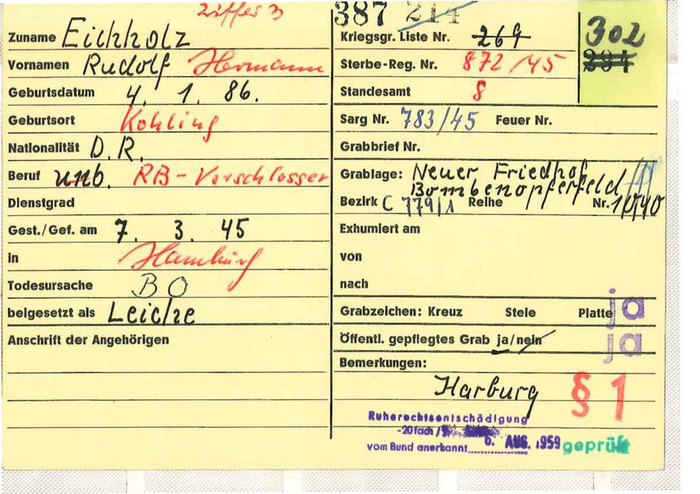 Ziffer 3
387 214
Zuname Eichholz
Vornamen Rudolf Hermann
Geburtsdatum 4. 1. 86.
Geburtsort Kohling
Nationalität D.R.
Beruf unb. RB-Vorschlosser
Dienstgrad
Gest./Gef. am 7. 3. 45
in Hamburg
Todesursache BO
beigesetzt als Leiche
Anschrift der Angehörigen
Kriegsgr. Liste Nr. 269
302
294
Sterbe-Reg. Nr. 872/45
Standesamt 8
Sarg Nr. 783/45 Feuer Nr.
Grabbrief Nr.
Grablage: Neuer Friedhof
Bombenopferfeld
Bezirk C 779/1 Reihe Nr. 10/40
Exhumiert am
von
nach
Grabzeichen: Kreuz Stele Platte ja
Öffentl. gepflegtes Grab ja/nein ja
Bemerkungen:
Harburg § 1
Ruherechtsentschädigung
-20fach/
vom Bund anerkannt 6. AUG. 1959 geprüft